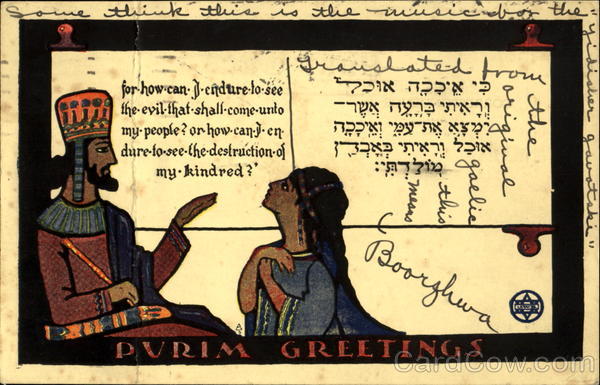 Some think this is the music for the
"yidisher gavotski"
for·how·can·I·endure·to·see
the·evil·that·shall·come·unto
my·people? or·how·can·I·en
dure·to·see·the·destruction·of
my·kindred?'
כִּי אֵיכָכָה אוּכַל
וְרָאִיתִי בָּרָעָה אֲשֶׁר־
יִמְצָא אֶת־עַמִּי וְאֵיכָכָה
אוּכַל וְרָאִיתִי בְּאָבְדַן
מוֹלַדְתִּי:
Translated from
the
original
gaelic
this
means
Boorghwa
PVRIM GREETINGS
CardCow.com